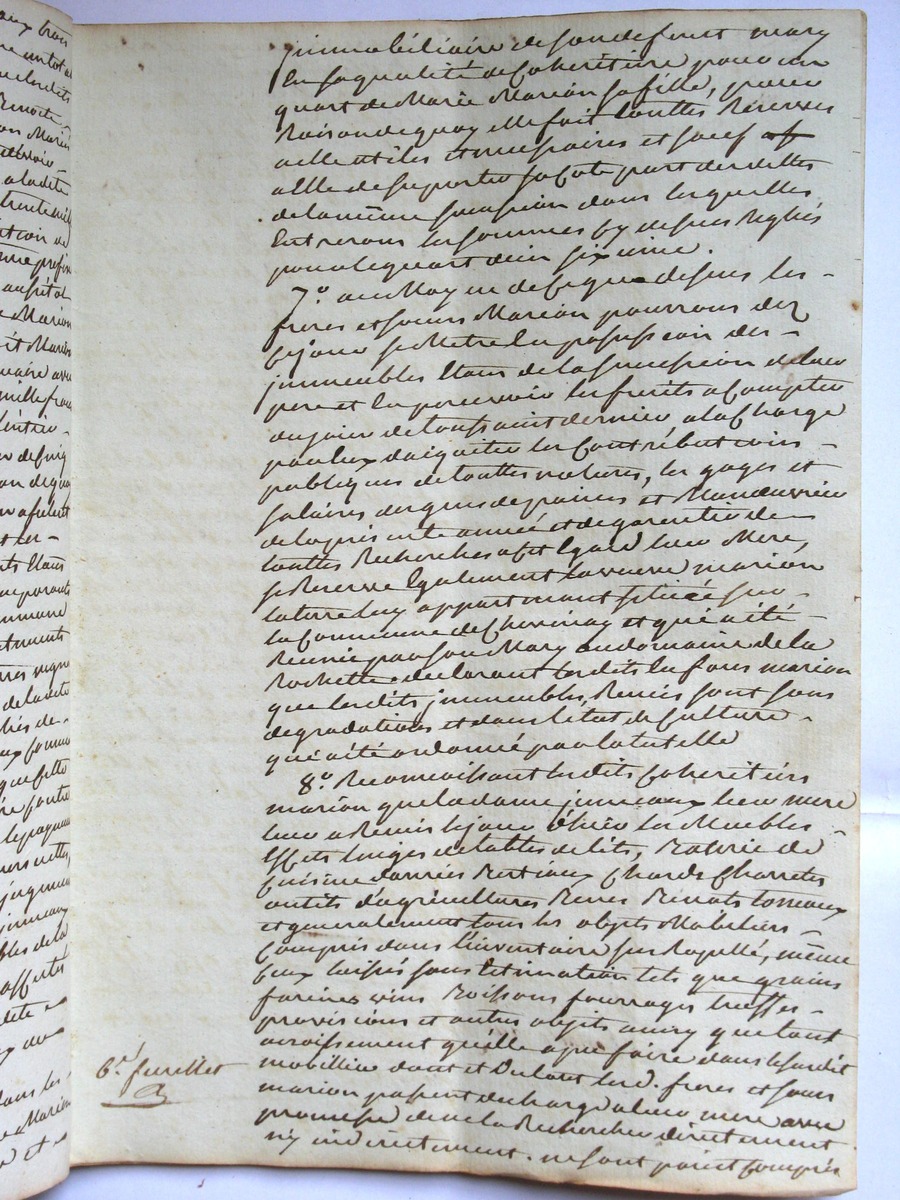 immobiliaire de son defunt mary
en sa qualité de coheritiere pour un
quart de Marie Marion sa fille, pour
Raison de quoy elle fait touttes Reserves
a elle utiles et necessaires et sauf
a elle de suporter sa cote part des dettes
de la même succession dans lesquelles
entreront les sommes cy dessus Reglés
pour le quart d'un sixieme.
7.° au Moyen de ce que dessus les
freres et sœurs Marion pourront dez
ce jour se Mettre en possession des
immeubles étans de la succession de leur
pere et en percevoir les fruits a compter
du jour de toussaint dernier, a la charge
par eux d'aquiter les contributions
publiques de touttes natures, les gages et
salaires des gens de peines et Manœuvrier
de la presente année et de garentir de
touttes Recherches a cet egard leur Mere,
se Reserve Egalement la veuve marion
la terre luy appartenant située sur
la Commune de Chevinay et qui a été
Reunie par son Mary au domaine de la
Rochette declarant lesdits enfans marion
que lesdits immeubles Remis sont sans
degradations et dans l'etat de culture
qui a été ordonné par la tutelle
8.° Reconnoissant lesdits coheritiers
marion que la dame jumeaux leur mere
leur a Remis ce jour d'huy les Meubles
effets linges de tables de lits, Batterie de
Cuisine danrées Bestiaux Chards Charrettes
outils d'agricultures tonneaux
et generalement tous les objets Mobiliers
Compris dans l'inventaire sus Rapellé, même
ceux laissés sans estimation tels que grains
farines vins Boissons fourrages
provisions et autres objets ainsy que tout
acroissement qu'elle a pu faire dans lesdit
mobillier dont et du tout lesd. freres et sœurs
marion passent decharge a leur mere avec
promesse de ne la Rechercher directement
n'y indirectement. ne sont point compris